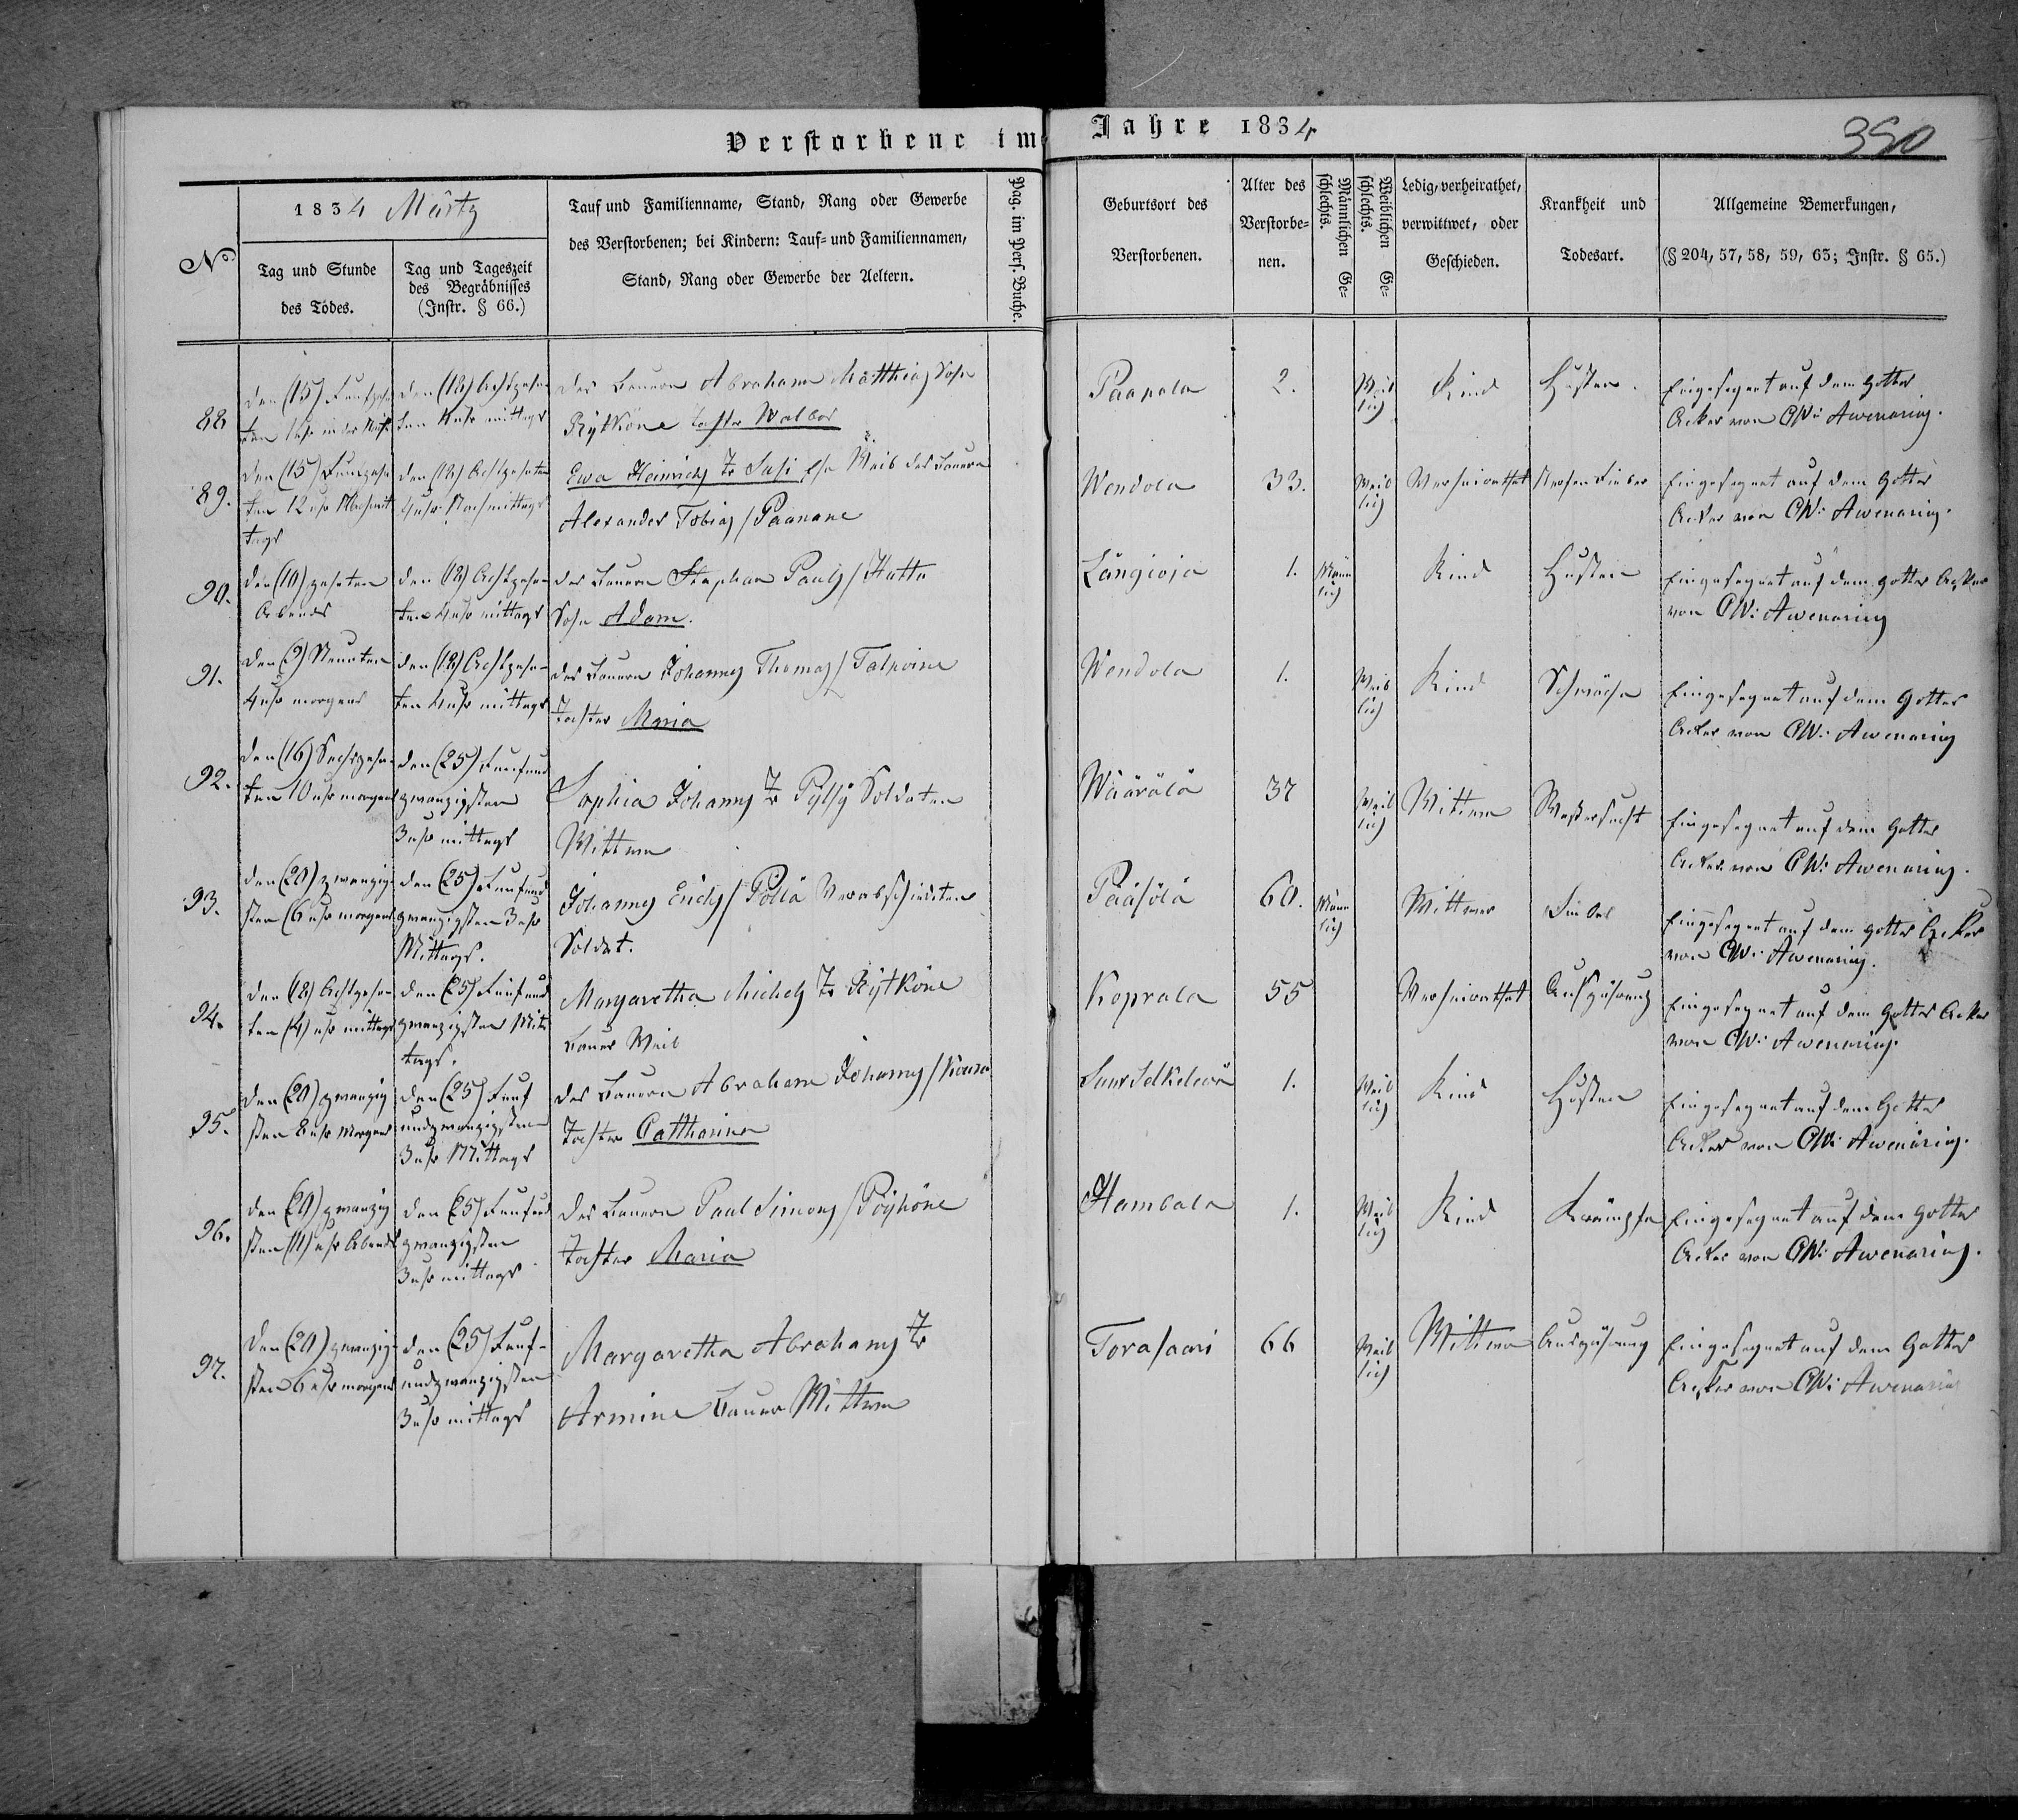 Verstorbene im Jahre 1834
390
No.
1834 Märtz
Tag und Stunde
des Todes.
Tag und Tageszeit
des Begräbnisses
(Instr. § 66.)
Tauf und Familienname, Stand, Rang oder Gewerbe
des Verstorbenen; bei Kindern: Tauf- und Familiennamen,
Stand, Rang oder Gewerbe der Aeltern.
Pag. im Pers. Buche.
Geburtsort des
Verstorbenen.
Alter des
Verstorbe-
nen.
Männlichen Ge-
schlechts.
Weiblichen Ge-
schlechts.
Ledig, verheirathet,
verwittwet, oder
Geschieden.
Krankheit und
Todesart.
Allgemeine Bemerkungen,
(§ 204, 57, 58, 59, 63; Instr. § 65.)
88
den (15) Funfzehn
ten 1 uhr in der
den (18) Achtzehn-
ten 4 uhr mittags
des Bauern Abraham Matthias Sohn
Rÿtköne tochter Walbor
Paapala
2.
Weib
lich
Kind
Husten.
Eingesegnet auf dem Gottes
Acker von CW: Awenarius.
89.
den (15) Funfzehn
ten 12 uhr Nachmit
tags
den (18) Achtzehnten
4 uhr Nachmittags
Ewa Heinrichs Tr Susi Weib des Bauern
Alexander Tobias/ Paanane
Wendola
33.
Weib
lich
Verheirathet
Nerfen Fieber
Eingesegnet auf dem Gottes
Acker von CW: Awenarius.
90.
den (10) zehnten
Abends
den (18) Achtzehn-
ten 4 uhr mittags
des Bauern Stephan Pauls/ Hatta
Sohn Adam.
Längioja
1.
Männ
lich
Kind
Husten
Eingesegnet auf dem Gottes Acker
von CW: Awenarius
91.
den (9) Neunten
4 uhr morgens
den (18) Achtzehn-
ten 4 uhr mittags
des Bauern Johannes Thomas/ Talpoine
Tochter Maria
Wendola
1.
Weib
lich
Kind
Schwäche
Eingesegnet auf dem Gottes
Acker von CW: Awenarius
92.
den (16) Sechzehn-
ten 10 uhr morgens
den (25) Funfund
zwanzigsten
3 uhr mittags
Sophia Johannes Tr Pÿlsÿ Soldaten
Wittwe
Wäärälä
37
Weib
lich
Wittwe
Wassersucht
Eingesegnet auf dem Gottes
Acker von CW: Awenarius.
93.
den (20) zwanzig-
sten (6 uhr morgens
den (25) Funfund
zwanzigsten 3 uhr
Mittags.
Johannes Erichs/ Pölla Verabschiedeter
Soldat.
Pääsölä
60.
Männ
lich
Wittwer
Fieber
Eingesegnet auf dem Gottes Acker
von CW: Awenarius.
94.
den (18) Achtzehn-
ten (4) uhr mittags
den (25) Funfund
zwanzigsten Mit
tags.
Margaretha Michels Tr Rÿtköne
Bauer Weib
Koprala
55
Verheirathet
Auszehrung
Eingesegnet auf dem Gottes Acker
von CW: Awenarius.
95.
den (20) zwanzig
sten 8 uhr Morgens
den (25) Funf
undzwanzigsten
3 uhr Mittags
des Bauern Abraham Johannes/
Tochter Catharina
1.
Weib
lich
Kind
Husten
Eingesegnet auf dem Gottes
Acker von CW: Awenarius.
96.
den (20) zwanzig
sten (11) uhr Abends
den (25) Funfund
zwanzigsten
3 uhr mittags
des Bauern Paul Simons/ Pöÿhöne
Tochter Maria
Hambala
1.
Weib
lich
Kind
Krämpfe
Eingesegnet auf dem Gottes
Acker von CW: Awenarius.
97.
den (20) zwanzig-
sten 6 uhr morgens
den (25) Funf-
undzwanzigsten
3 uhr mittags
Margaretha Abrahams Tr
Armine Bauer Wittwe
Torasaari
66
Weib
lich
Wittwe
Auszehrung
Eingesegnet auf dem Gottes
Acker von CW: Awenarius